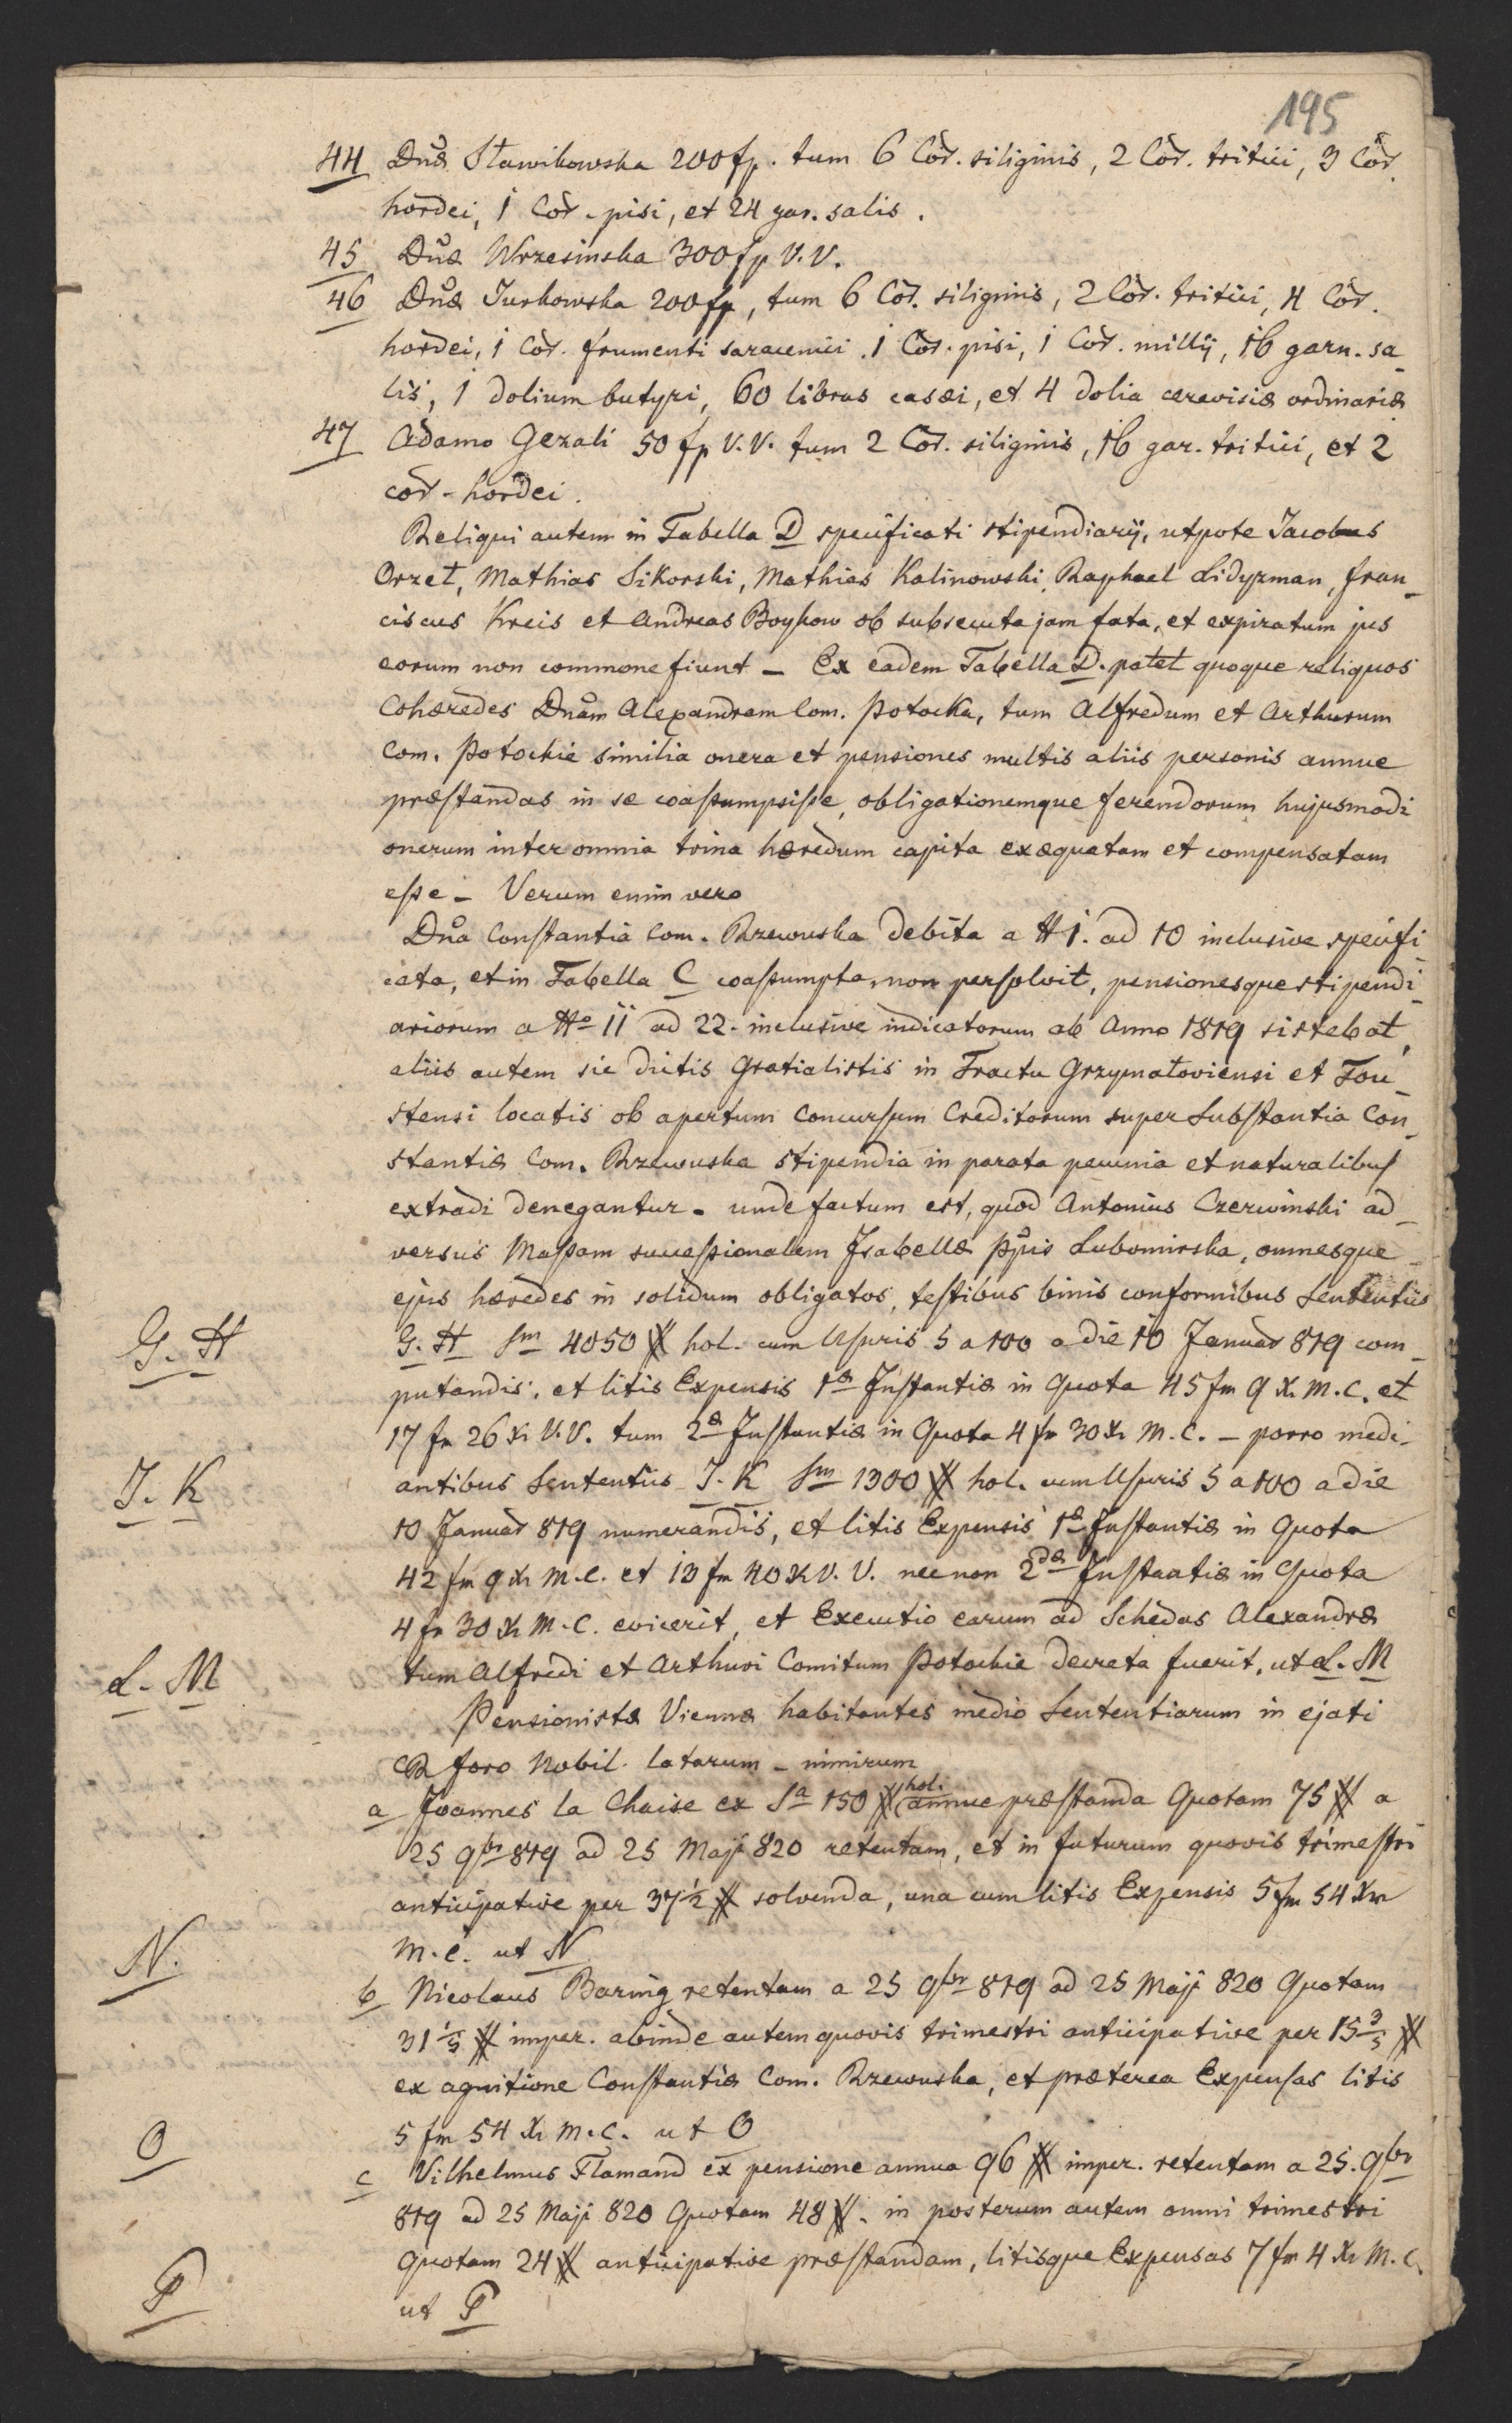 195
44 Dnã Sławikowska 200 fp. tum 6 Cor. siliginis, 2 Cor. tritici, 3 Cor.
hordei, 1 Cor. pisi, et 24 gar. salis.
45 Dnã Wrzesinska 300 fp V.V.
46 Dnã Jurkowska 200 fp, tum 6 Cor. siliginis, 2 Cor. tritici, 4 Cor.
hordei, 1 Cor. frumenti saracenici. 1 Cor. pisi, 1 Cor. millij, 16 garn. sa-
lis, 1 dolium butyri, 60 libras casæi, et 4 dolia cerevisiæ ordinariæ
47 Adamo Gezali 50 fp V.V. tum 2 Cor. siliginis, 16 gar. tritici, et 2
cor. hordei.
Reliqui autem in Tabella D specificati stipendiarij, utpote Jacobus
Orzeł, Mathias Sikorski, Mathias Kalinowski, Raphael Lidyzman, Fran-
ciscus Kreis et Andreas Boykow ob subsecuta jam fata, et expiratum jus
eorum non commonefiunt – Ex eadem Tabella D. patet quoque reliquos
Cohæredes Dnãm Alexandram Com. Potocka, tum Alfredum et Arthurum
Com. Potockie similia onera et pensiones multis aliis personis annue
præstandas in se coassumpsisse, obligationemque ferendorum hujusmodi
onerum inter omnia trina hæredum capita exæquatam et compensatam
esse – Verum enim vero
Dnã Constantia Com. Rzewuska debita a N 1. ad 10 inclusive specifi-
cata, et in Tabella C coassumpta, non persolvit, pensionesque stipendi-
ariorum a No 11 ad 22. inclusive indicatorum ab Anno 1819 sistebat,
aliis autem sic dictis Gratialistis in Tractu Grzymałoviensi et Tou-
stensi locatis ob apertum Concursum Creditorum super Substantia Con-
stantiæ Com. Rzewuska stipendia in parata pecunia et naturalibus
extradi denegantur – unde factum est, quod Antonius Czerwinski ad-
versus Massam successionalem Isabellæ Ppis Lubomirska, omnesque
ejus hæredes in solidum obligatos, testibus binis conformibus Sententiis
G. H
G. H Sm 4050 # hol. cum Usuris 5 a 100 a die 10 Januar 819 com-
putandis, et litis Expensis 1æ Instantiæ in Quota 45 fm 9 Xr M.C. et
17 fr 26 Xr V.V. tum 2æ Instantiæ in Quota 4 fr 30 Xr M.C. – porro medi-
J. K
antibus Sententiis J. K Sm 1300 # hol. cum Usuris 5 a 100 a die
10 Januar 819 numerandis, et litis Expensis 1æ Instantiæ in Quota
42 fm 9 Xr M.C. et 13 fm 40 X V.V. nec non 2dæ Instantiæ in Quota
4 fr 30 Xr M.C. evicerit, et Executio earum ad Schedas Alexandræ
L. M
tum Alfredi et Arthuri Comitum Potockie decreta fuerit, ut L. M
Pensionistæ Viennæ habitantes medio Sententiarum in ejati
CR foro Nobil. latarum – nimirum
a Joannes la Chaise ex Sa 150 # hol. annue præstanda Quotam 75 # a
25 9br 819 ad 25 Maji 820 retentam, et in futurum quovis trimestri
anticipative per 37½ # solvenda, una cum litis Expensis 5 fm 54 Xr
N.
M.C. ut N
b Nicolaus Baring retentam a 25 9br 819 ad 25 Maji 820 Quotam
31 1/5 # imper. abinde autem quovis trimestri anticipative per 15 3/5 #
ex agnitione Constantiæ Com. Rzewuska, et præterea Expensas litis
O
5 fm 54 Xr M.C. ut O
c Vilhelmus Flamand ex pensione annua 96 # imper. retentam a 25. 9br
819 ad 25 Maji 820 Quotam 48 #. in posterum autem omni trimestri
Quotam 24 # anticipative præstandam, litisque Expensas 7 fm 4 Xr M.C.
P
ut P